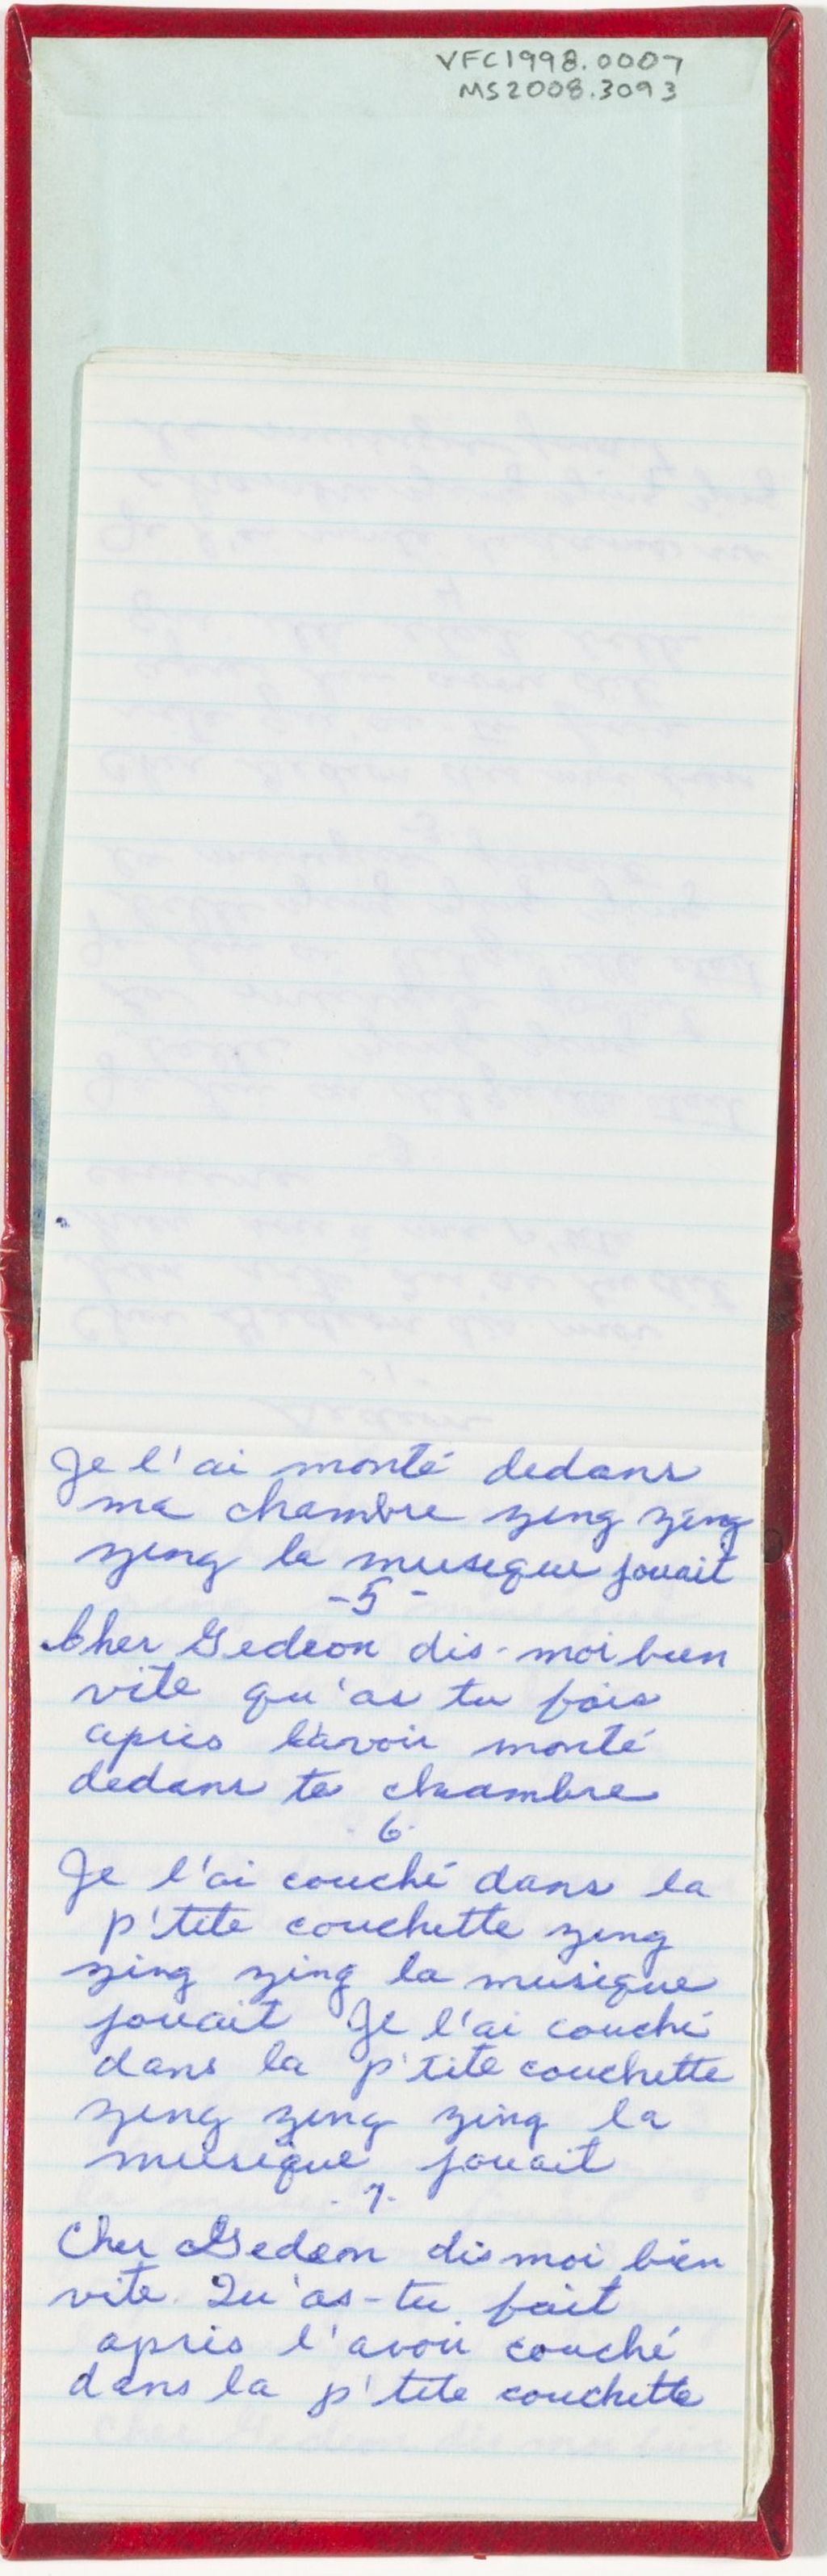 VFC1998.0007
MS2008.3093
Je l'ai monté dedans
ma chambre zing zing
zing la musique jouait
-5-
Cher Gedeon dis-moi bien
vite qu'as tu fais
apres l'avoir monté
dedans ta chambre
6.
Je l'ai couché dans la
p'tite couchette zing
zing zing la musique
jouait Je l'ai couché
dans la p'tite couchette
zing zing zing la
musique jouait
-7-
Cher Gedeon dis moi bien
vite Qu'as-tu fait
apres l'avoir couché
dans la p'tite couchette